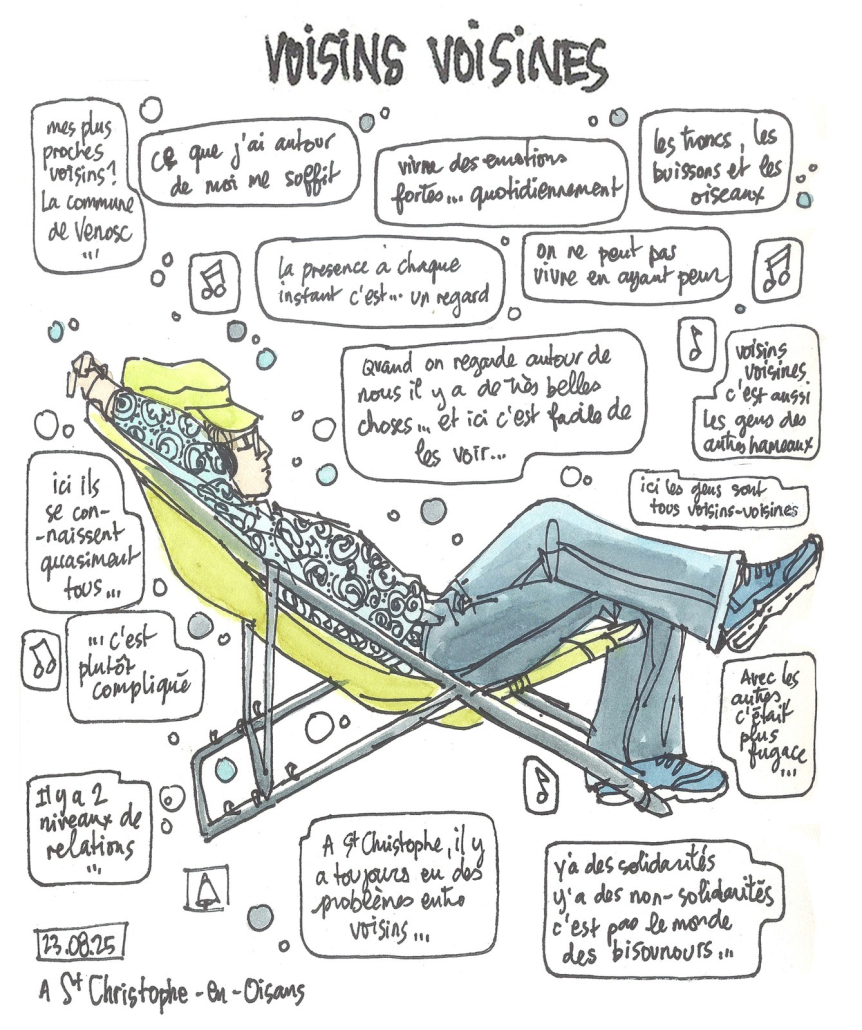 VOISINS VOISINES
mes plus
proches
voisins?
La commune
de Venosc
...
ce que j'ai autour
de moi me suffit
vivre des emotions
fortes... quotidiennement
les troncs, les
buissons et les
oiseaux
la presence à chaque
instant c'est... un regard
on ne peut pas
vivre en ayant peur
Quand on regarde autour de
nous il y a de très belles
choses... et ici c'est facile de
les voir...
voisins
voisines
c'est aussi
les gens des
autres hameaux
ici ils
se con-
-naissent
quasiment
tous...
ici les gens sont
tous voisins-voisines
... c'est
plutôt
compliqué
Avec les
autres
c'était
plus
fugace
...
Il y a 2
niveaux de
relations
...
A St Christophe, il y
a toujours eu des
problèmes entre
voisins...
y'a des solidarités
y'a des non-solidarités
c'est pas le monde
des bisounours...
23.08.25
A St Christophe-en-Oisans